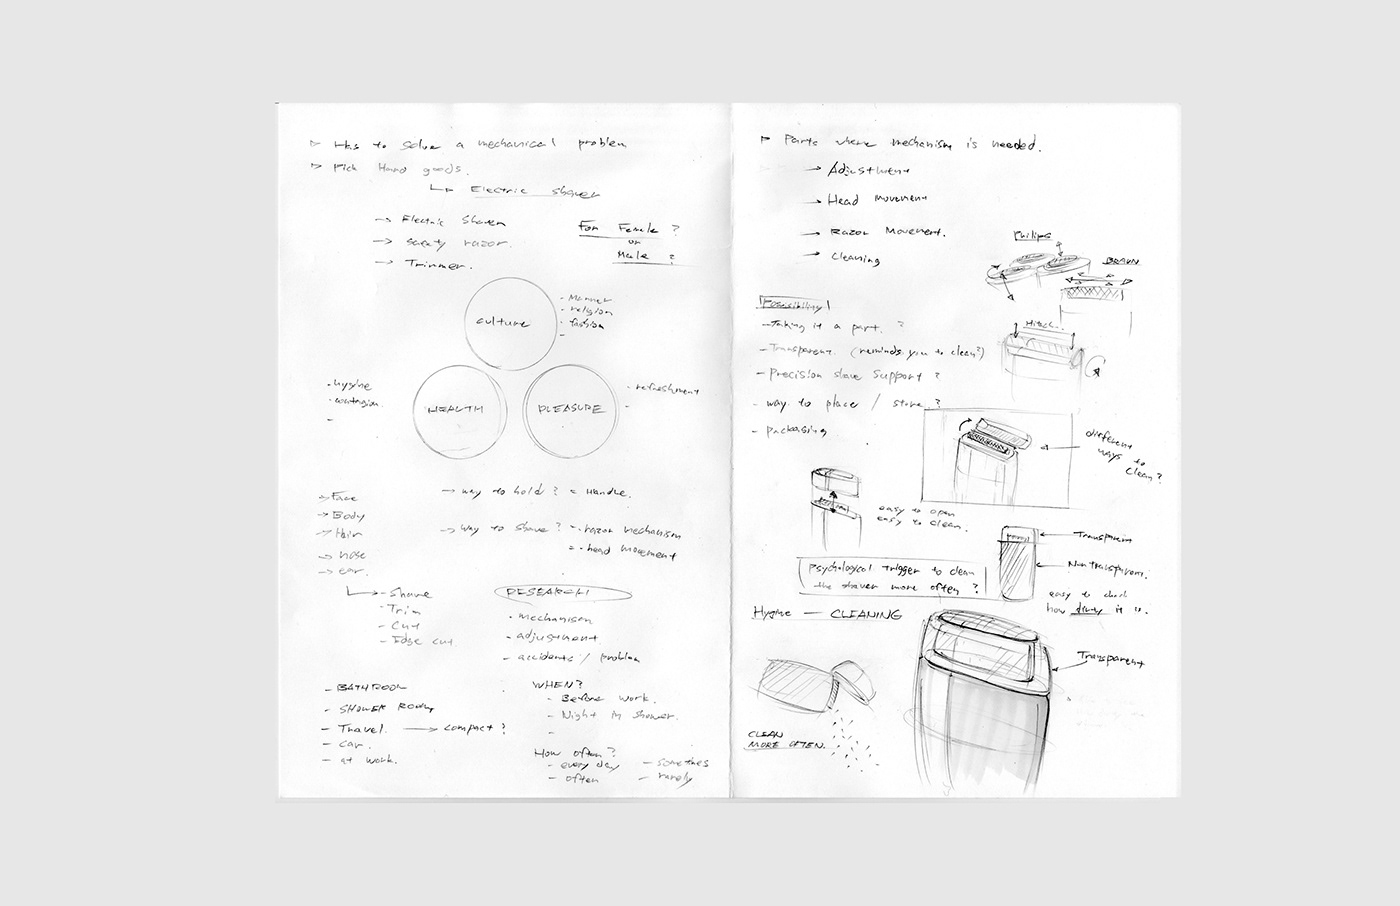 Has to solve a mechanical problem
Pick Hard goods.
Electric shaver
Electric Shaver
Safety razor.
Trimmer.
For Female ?
or
Male ?
culture
- Manner
- religion
- fashion
HEALTH
PLEASURE
· hygine
· contagion.
- refreshment
Face
Body
Hair
nose
ear.
way to hold ? = Handle.
way to shave ? - razor mechanism
- head movement
- Shave
- Trim
- Cut
- Edge cut
RESEARCH
- mechanism
- adjustment
- accidents / problem
- BATHROOM
- SHOWER ROOM
- Travel. → compact ?
- car.
- at work.
WHEN?
- Before work.
- Night in shower.
-
How often ?
- every day
- often
- sometimes
- rarely
Parts where mechanism is needed.
→ Adjustment
→ Head Movement
→ Razor Movement.
→ Cleaning
Philips
BRAUN
Hitach..
Possibility
- Taking it a part. ?
- Transparent. (reminds you to clean?)
- Precision shave Support ?
- way to place / store ?
- packaging
different
ways to
clean ?
easy to open
easy to clean.
Transparent
Non transparent.
easy to check
how dirty it is.
Psychological Trigger to clean
the shaver more often ?
Hygine — CLEANING
Transparent
CLEAN
MORE OFTEN.